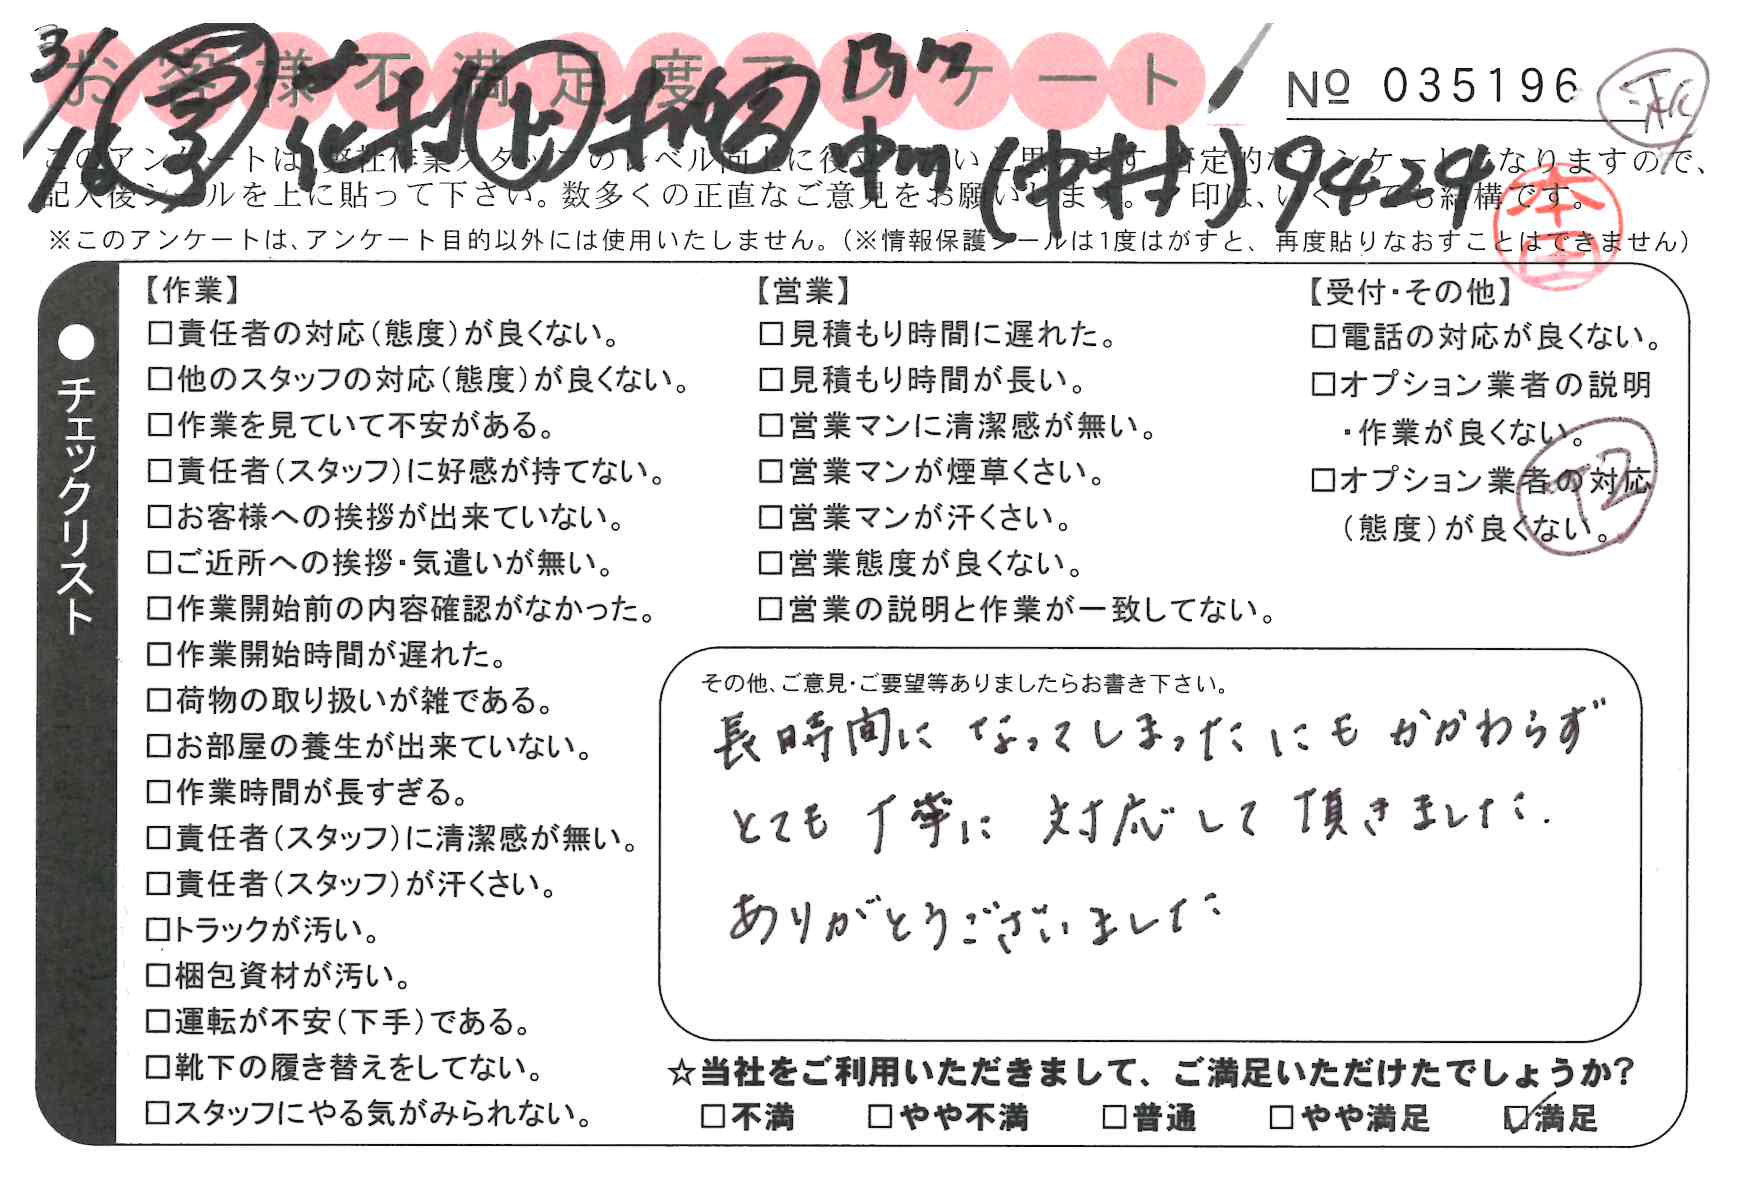 お客様不満足度アンケート
№ 035196
(中村) 9424
本田
※このアンケートは、アンケート目的以外には使用いたしません。(※情報保護シールは1度はがすと、再度貼りなおすことはできません)
チェックリスト
【作業】
□責任者の対応(態度)が良くない。
□他のスタッフの対応(態度)が良くない。
□作業を見ていて不安がある。
□責任者(スタッフ)に好感が持てない。
□お客様への挨拶が出来ていない。
□ご近所への挨拶・気遣いが無い。
□作業開始前の内容確認がなかった。
□作業開始時間が遅れた。
□荷物の取り扱いが雑である。
□お部屋の養生が出来ていない。
□作業時間が長すぎる。
□責任者(スタッフ)に清潔感が無い。
□責任者(スタッフ)が汗くさい。
□トラックが汚い。
□梱包資材が汚い。
□運転が不安(下手)である。
□靴下の履き替えをしてない。
□スタッフにやる気がみられない。
【営業】
□見積もり時間に遅れた。
□見積もり時間が長い。
□営業マンに清潔感が無い。
□営業マンが煙草くさい。
□営業マンが汗くさい。
□営業態度が良くない。
□営業の説明と作業が一致してない。
【受付・その他】
□電話の対応が良くない。
□オプション業者の説明
・作業が良くない。
□オプション業者の対応
(態度)が良くない。
その他、ご意見・ご要望等ありましたらお書き下さい。
長時間になってしまったにもかかわらず
とても丁寧に対応して頂きました.
ありがとうございました
☆当社をご利用いただきまして、ご満足いただけたでしょうか?
□不満 □やや不満 □普通 □やや満足 ☑満足